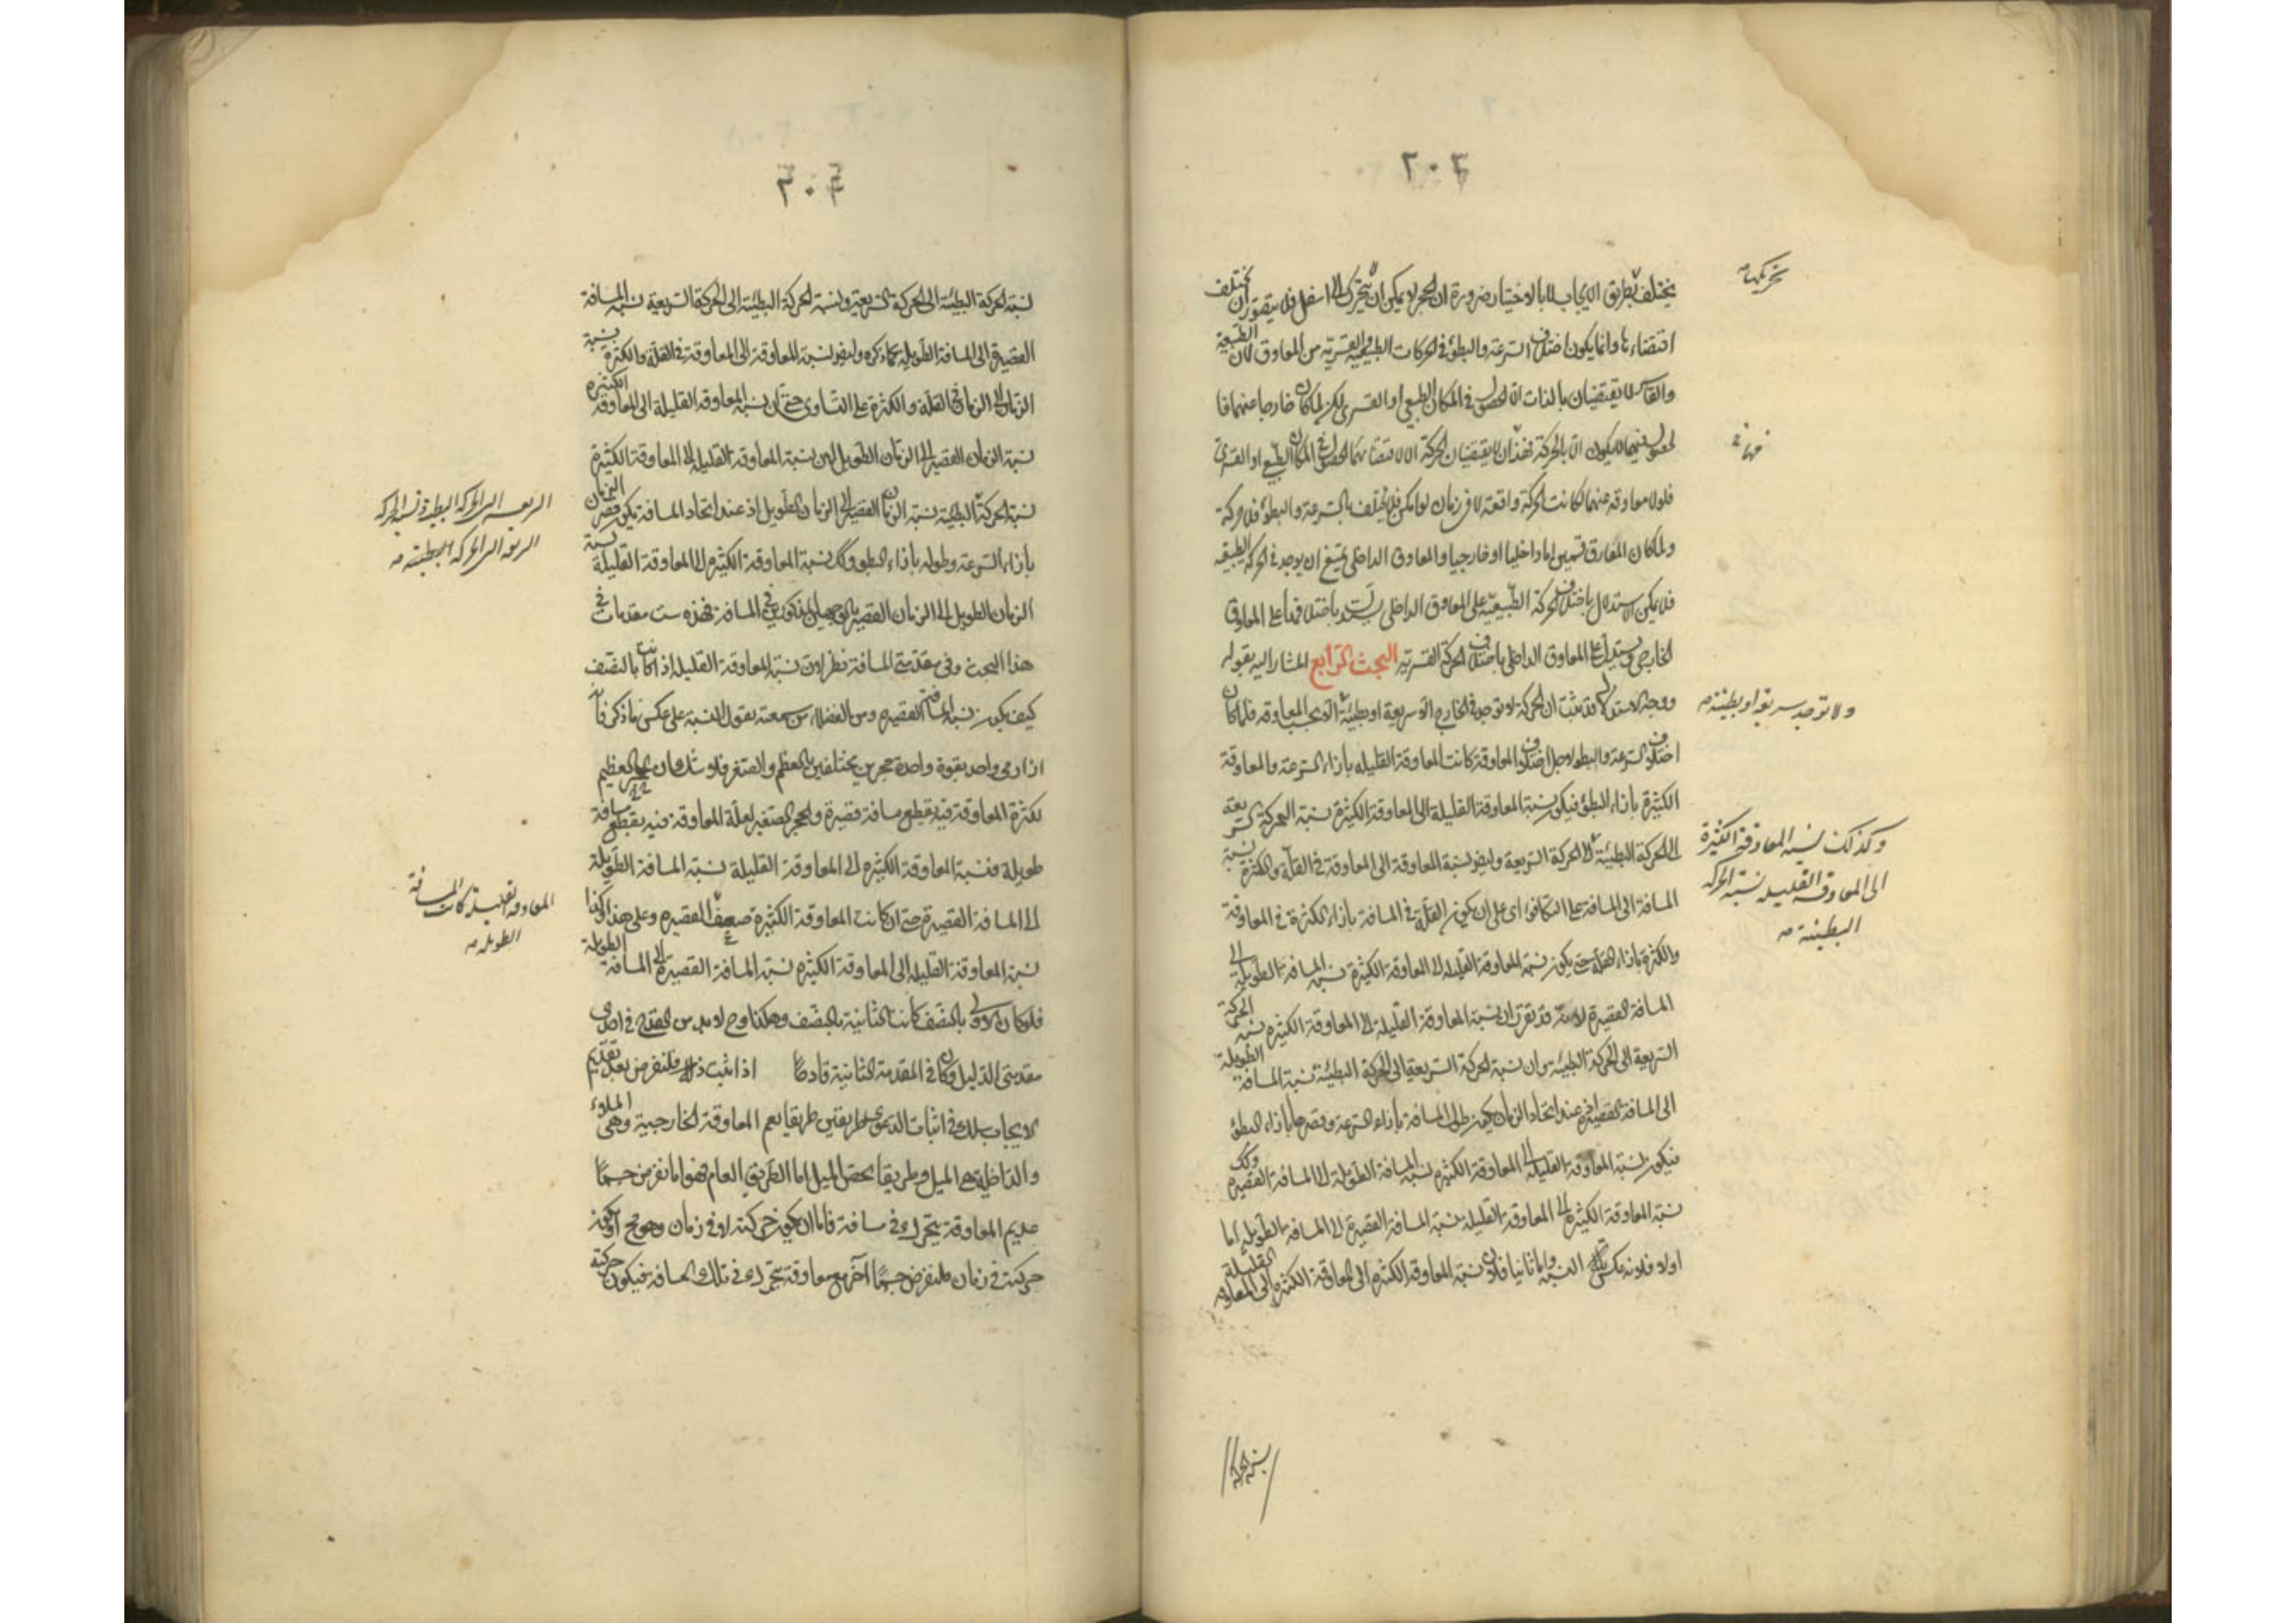 ٢٠٣
يختلف بطريق الايجاب لا بالاختيار ضرورة ان الحجر لا يمكن ان يتحرك الا الى اسفل فلا يتصور ان يختلف
تحريكها
اقتضاءها وانما يكون اختلاف السرعة والبطؤ في الحركات الطبيعية والقسرية من المعاوق لان الطبيعة
والقاسر لا يقتضيان بالذات الا الحصول في المكان الطبيعي او القسري لكن لما كان خارجا عنهما فا
لحصول فيهما لا يكون الا بالحركة فهذان لا يقتضيان الحركة الا لاقتضائهما الحصول في المكان الطبيعي او القسري
فلولا معاوقة عنهما لكانت الحركة واقعة لا في زمان لو امكن فلا يختلف بالسرعة والبطؤ فلا حركة
ولما كان المعاوق قسمين اما داخليا او خارجيا والمعاوق الداخلي يمتنع ان يوجد في الحركة الطبيعية
فلا يمكن الاستدلال باختلاف الحركة الطبيعية على المعاوق الداخلي بل يستدل باختلافها على المعاوق
الخارجي ويستدل على المعاوق الداخلي باختلاف الحركة القسرية البحث الرابع المشار اليه بقوله
ووجه الاستدلال قد ثبت ان الحركة لا توجد في الخارج الا سريعة او بطيئة الا بحسب المعاوقة فلما كان
ولا توجد سريعة او بطيئة
اختلاف السرعة والبطؤ لاجل اختلاف المعاوقة كانت المعاوقة القليلة بازاء السرعة والمعاوقة
الكثيرة بازاء البطؤ فيكون نسبة المعاوقة القليلة الى المعاوقة الكثيرة نسبة الحركة السريعة
الى الحركة البطيئة الى الحركة السريعة وايضا نسبة المعاوقة الى المعاوقة في القلة والكثرة نسبة
وكذلك نسبة المعاوقة الكثيرة
الى المعاوقة القليلة نسبة الحركة
البطيئة
المسافة الى المسافة على التكافؤ اى على ان يكون القلة في المسافة بازاء الكثرة في المعاوقة
والكثرة بازاء القلة حتى يكون نسبة المعاوقة القليلة الى المعاوقة الكثيرة نسبة المسافة الطويلة الى
المسافة القصيرة لانه قد تقرر ان نسبة المعاوقة القليلة الى المعاوقة الكثيرة نسبة الحركة
السريعة الى الحركة البطيئة وان نسبة الحركة السريعة الى الحركة البطيئة نسبة المسافة الطويلة
الى المسافة القصيرة اذ عند اتحاد الزمان يكون طول المسافة بازاء السرعة وقصرها بازاء البطؤ
فيكون نسبة المعاوقة القليلة الى المعاوقة الكثيرة نسبة المسافة الطويلة الى المسافة القصيرة وكذا
نسبة المعاوقة الكثيرة الى المعاوقة القليلة نسبة المسافة القصيرة الى المسافة الطويلة اما
اولا فلانه عكس تلك النسبة واما ثانيا فلان نسبة المعاوقة الكثيرة الى المعاوقة الكثيرة الى المعاوقة القليلة
نسبة الحركة
٢٠٤
نسبة الحركة البطيئة الى الحركة السريعة ونسبة الحركة البطيئة الى الحركة السريعة نسبة المسافة
القصيرة الى المسافة الطويلة كما ذكره وايضا نسبة المعاوقة الى المعاوقة في القلة والكثرة نسبة
الزمان الى الزمان في القلة والكثرة على التساوى حتى ان نسبة المعاوقة القليلة الى المعاوقة الكثيرة
نسبة الزمان القصير الى الزمان الطويل لان نسبة المعاوقة القليلة الى المعاوقة الكثيرة
نسبة الحركة البطيئة نسبة الزمان القصير الى الزمان الطويل اذ عند اتحاد المسافة يكون قصر الزمان
السريعة الى الحركة البطيئة ونسبة الحركة
السريعة الى الحركة البطيئة
بازاء السرعة وطوله بازاء البطؤ وكذا نسبة المعاوقة الكثيرة الى المعاوقة القليلة نسبة
الزمان الطويل الى الزمان القصير بالوجهين المذكورين في المسافة فهذه ست مقدمات في
هذا البحث وفى مقدمتى المسافة نظر لان نسبة المعاوقة القليلة اذا كانت بالنصف
كيف يكون نسبة المسافة القصيرة ومن الفضلاء من سمعته يقول النسبة على عكس ما ذكر فانه
اذا رمى واحد بقوة واحدة حجرين مختلفين بالعظم والصغر فلا شك ان الحجر العظيم
لكثرة المعاوقة فيه يقطع مسافة قصيرة والحجر الصغير لقلة المعاوقة فيه يقطع مسافة
طويلة فنسبة المعاوقة الكثيرة الى المعاوقة القليلة نسبة المسافة الطويلة
الى المسافة القصيرة حتى ان كانت المعاوقة الكثيرة ضعف القصيرة وعلى هذا وكذا
المعاوقة القليلة كانت المسافة
الطويلة
نسبة المعاوقة القليلة الى المعاوقة الكثيرة نسبة المسافة القصيرة الى المسافة الطويلة
فلو كان الاولى بالنصف كانت الثانية بالنصف وهكذا وح لا بد من القدح في احدى
مقدمتى الدليل وكان في المقدمة الثانية قادحا اذا ثبت ذلك فلنفرض بعد تقديم
الايجاب سلك في اثبات الدعوى طريقتين طريقا يعم المعاوقة الخارجية وهى الملاء
والداخلية وهى الميل وطريقا يخص الميل اما الطريق العام فهو انا نفرض جسما
عديم المعاوقة يتحرك في مسافة فاما ان يكون حركته لا في زمان وهو مح او يكون
حركته في زمان فلنفرض جسما آخر مع معاوقة يتحرك في تلك المسافة فيكون حركته